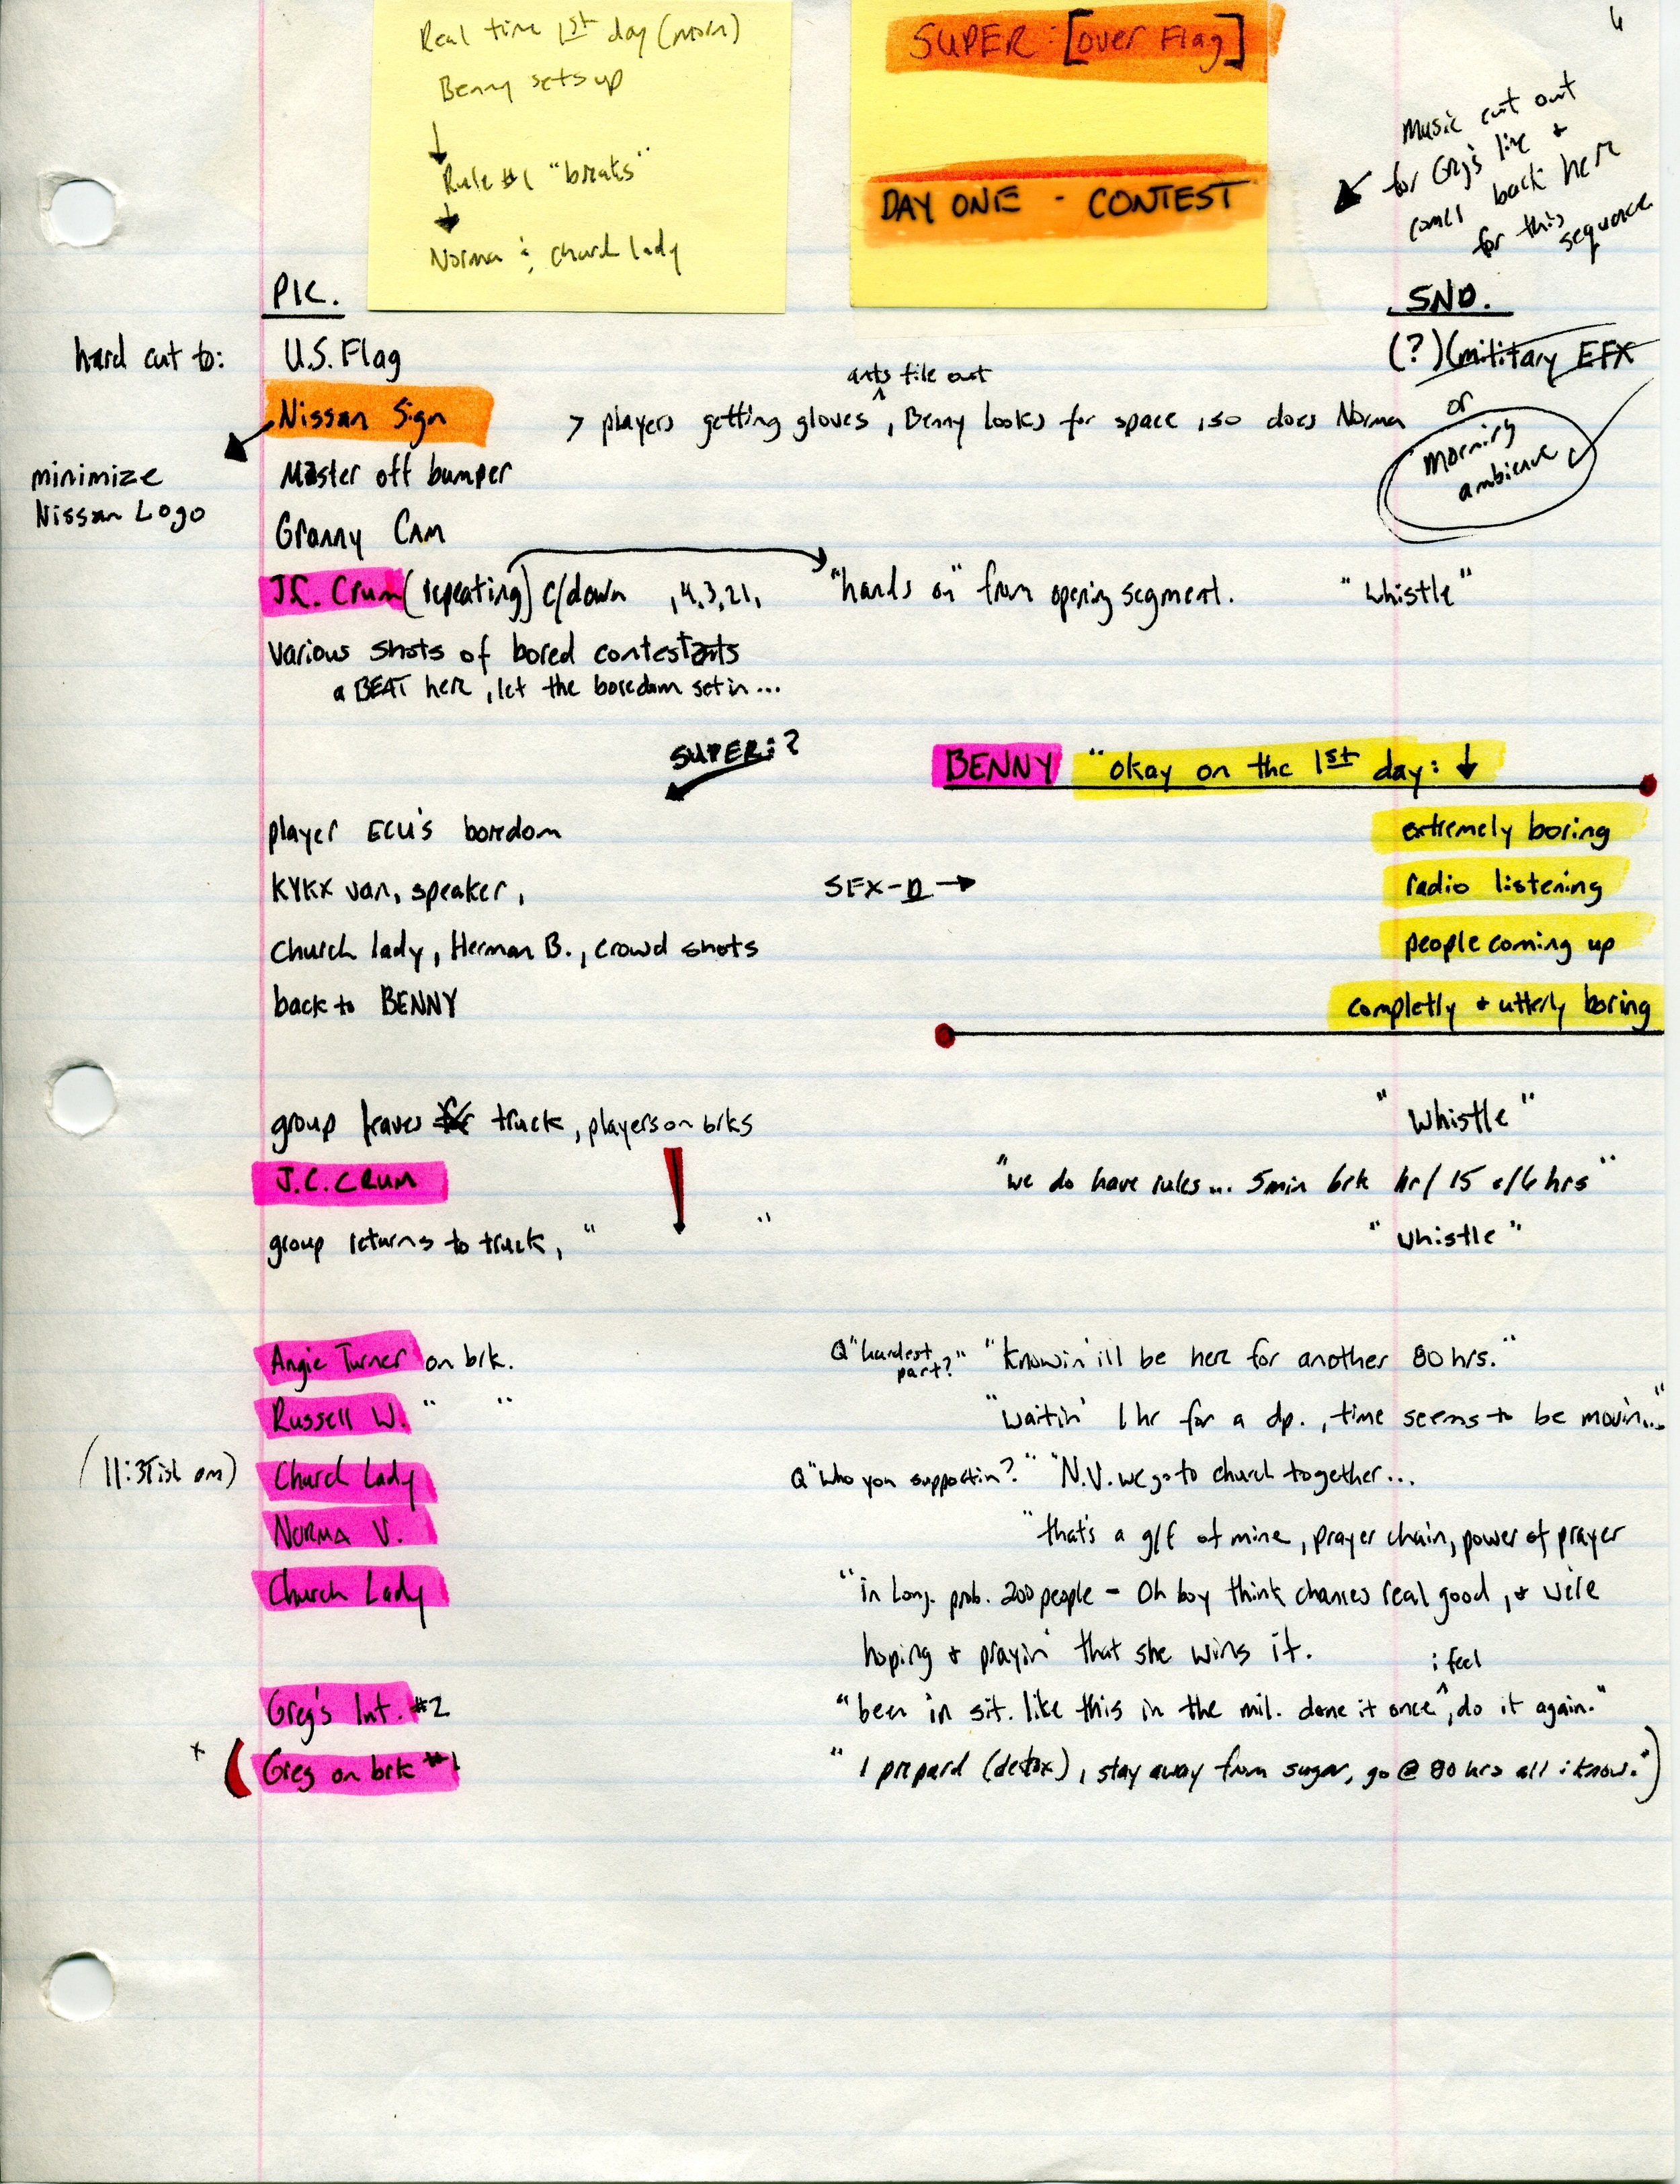 4
Real time 1st day (morn)
Benny sets up
Rule #1 "breaks"
Norma & church lady
SUPER: [over Flag]
DAY ONE - CONTEST
Music cut out
for Grg's line +
comes back here
for this
sequence
PIC.
SND.
hard cut to: U.S. Flag
(?) (military EFX
or
morning
ambience
Nissan Sign
ants file out
> players getting gloves, Benny looks for space, so does Norma
minimize
Nissan Logo
Master off bumper
Granny CAM
J.C. Crum (repeating) c/down , 4, 3, 2 1, "hands on" from opening segment. "Whistle"
various shots of bored contestants
a BEAT here, let the boredom set in...
SUPER: ?
BENNY "okay on the 1st day:
player ECU's boredom extremely boring
KYKX van, speaker, SFX-D radio listening
church lady, Herman B., crowd shots people coming up
back to BENNY completly + utterly boring
group leaves truck, players on brks "Whistle"
J.C. CRUM "we do have rules... 5min brk hr/ 15 e/6 hrs"
group returns to truck, " " "Whistle"
Angie Turner on brk. Q "hardest part?" "knowin' ill be here for another 80 hrs."
Russell W. " " "Waitin' 1 hr for a dp., time seems to be movin..."
(11:35ish am) Church Lady Q "Who you supportin?" "N.V. we go to church together...
NORMA V. "that's a g/f of mine, prayer chain, power of prayer
Church Lady "in Long. prob. 200 people - Oh boy think chances real good, + we're
hoping + prayin' that she wins it.
i feel
Greg's Int. #2 "been in sit. like this in the mil. done it once, do it again."
x ( Greg on brk #1 "I prepard (detox), stay away from sugar, go @ 80 hrs all i know.")